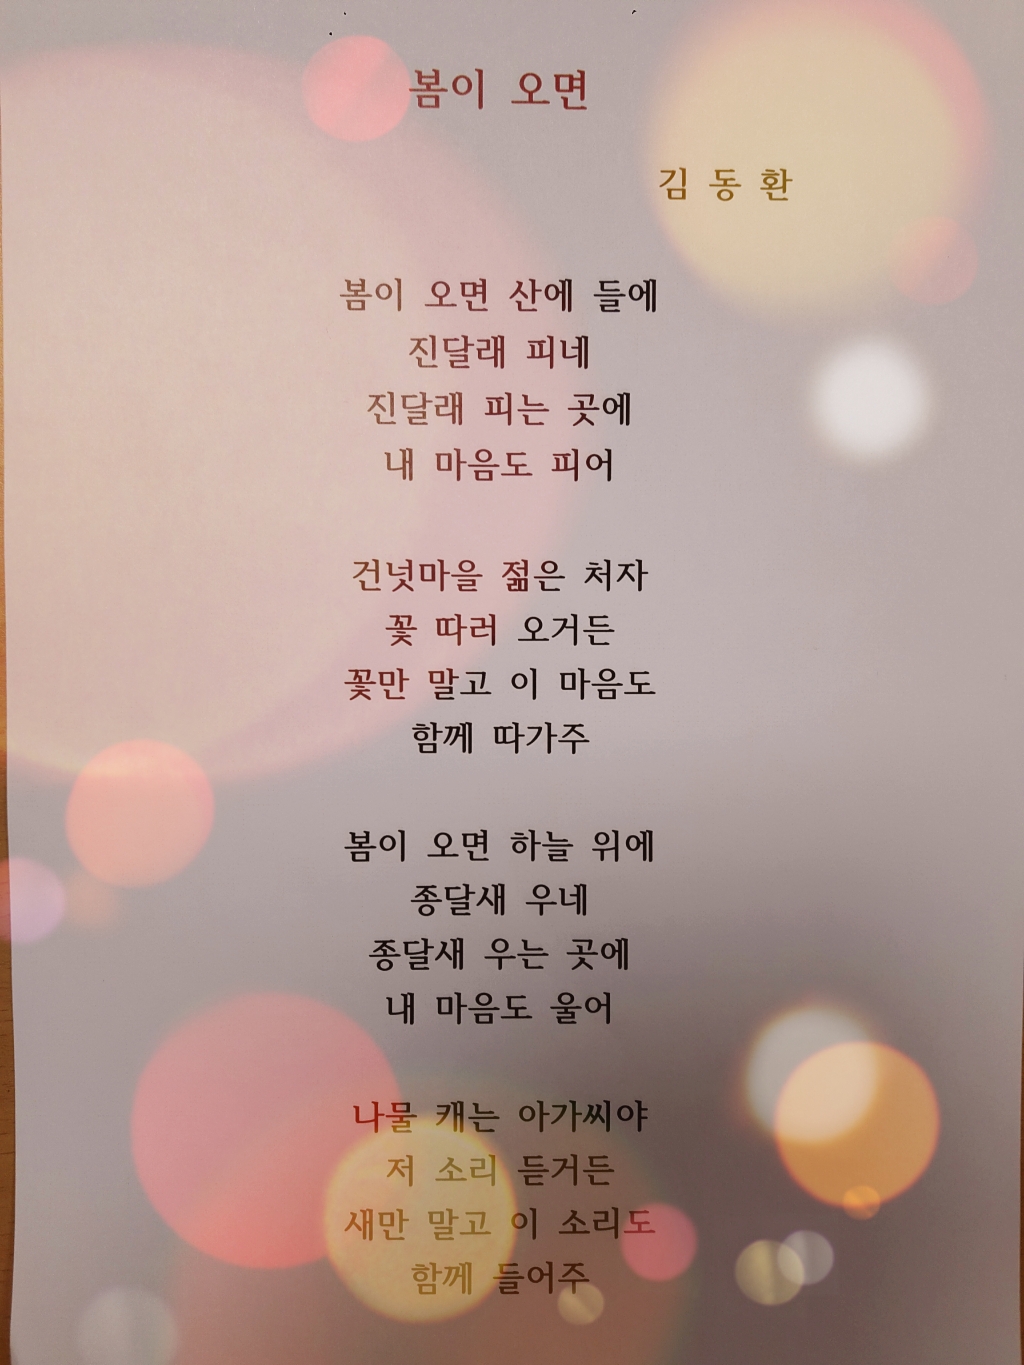 봄이 오면
김 동 환
봄이 오면 산에 들에
진달래 피네
진달래 피는 곳에
내 마음도 피어
건넛마을 젊은 처자
꽃 따러 오거든
꽃만 말고 이 마음도
함께 따가주
봄이 오면 하늘 위에
종달새 우네
종달새 우는 곳에
내 마음도 울어
나물 캐는 아가씨야
저 소리 듣거든
새만 말고 이 소리도
함께 들어주